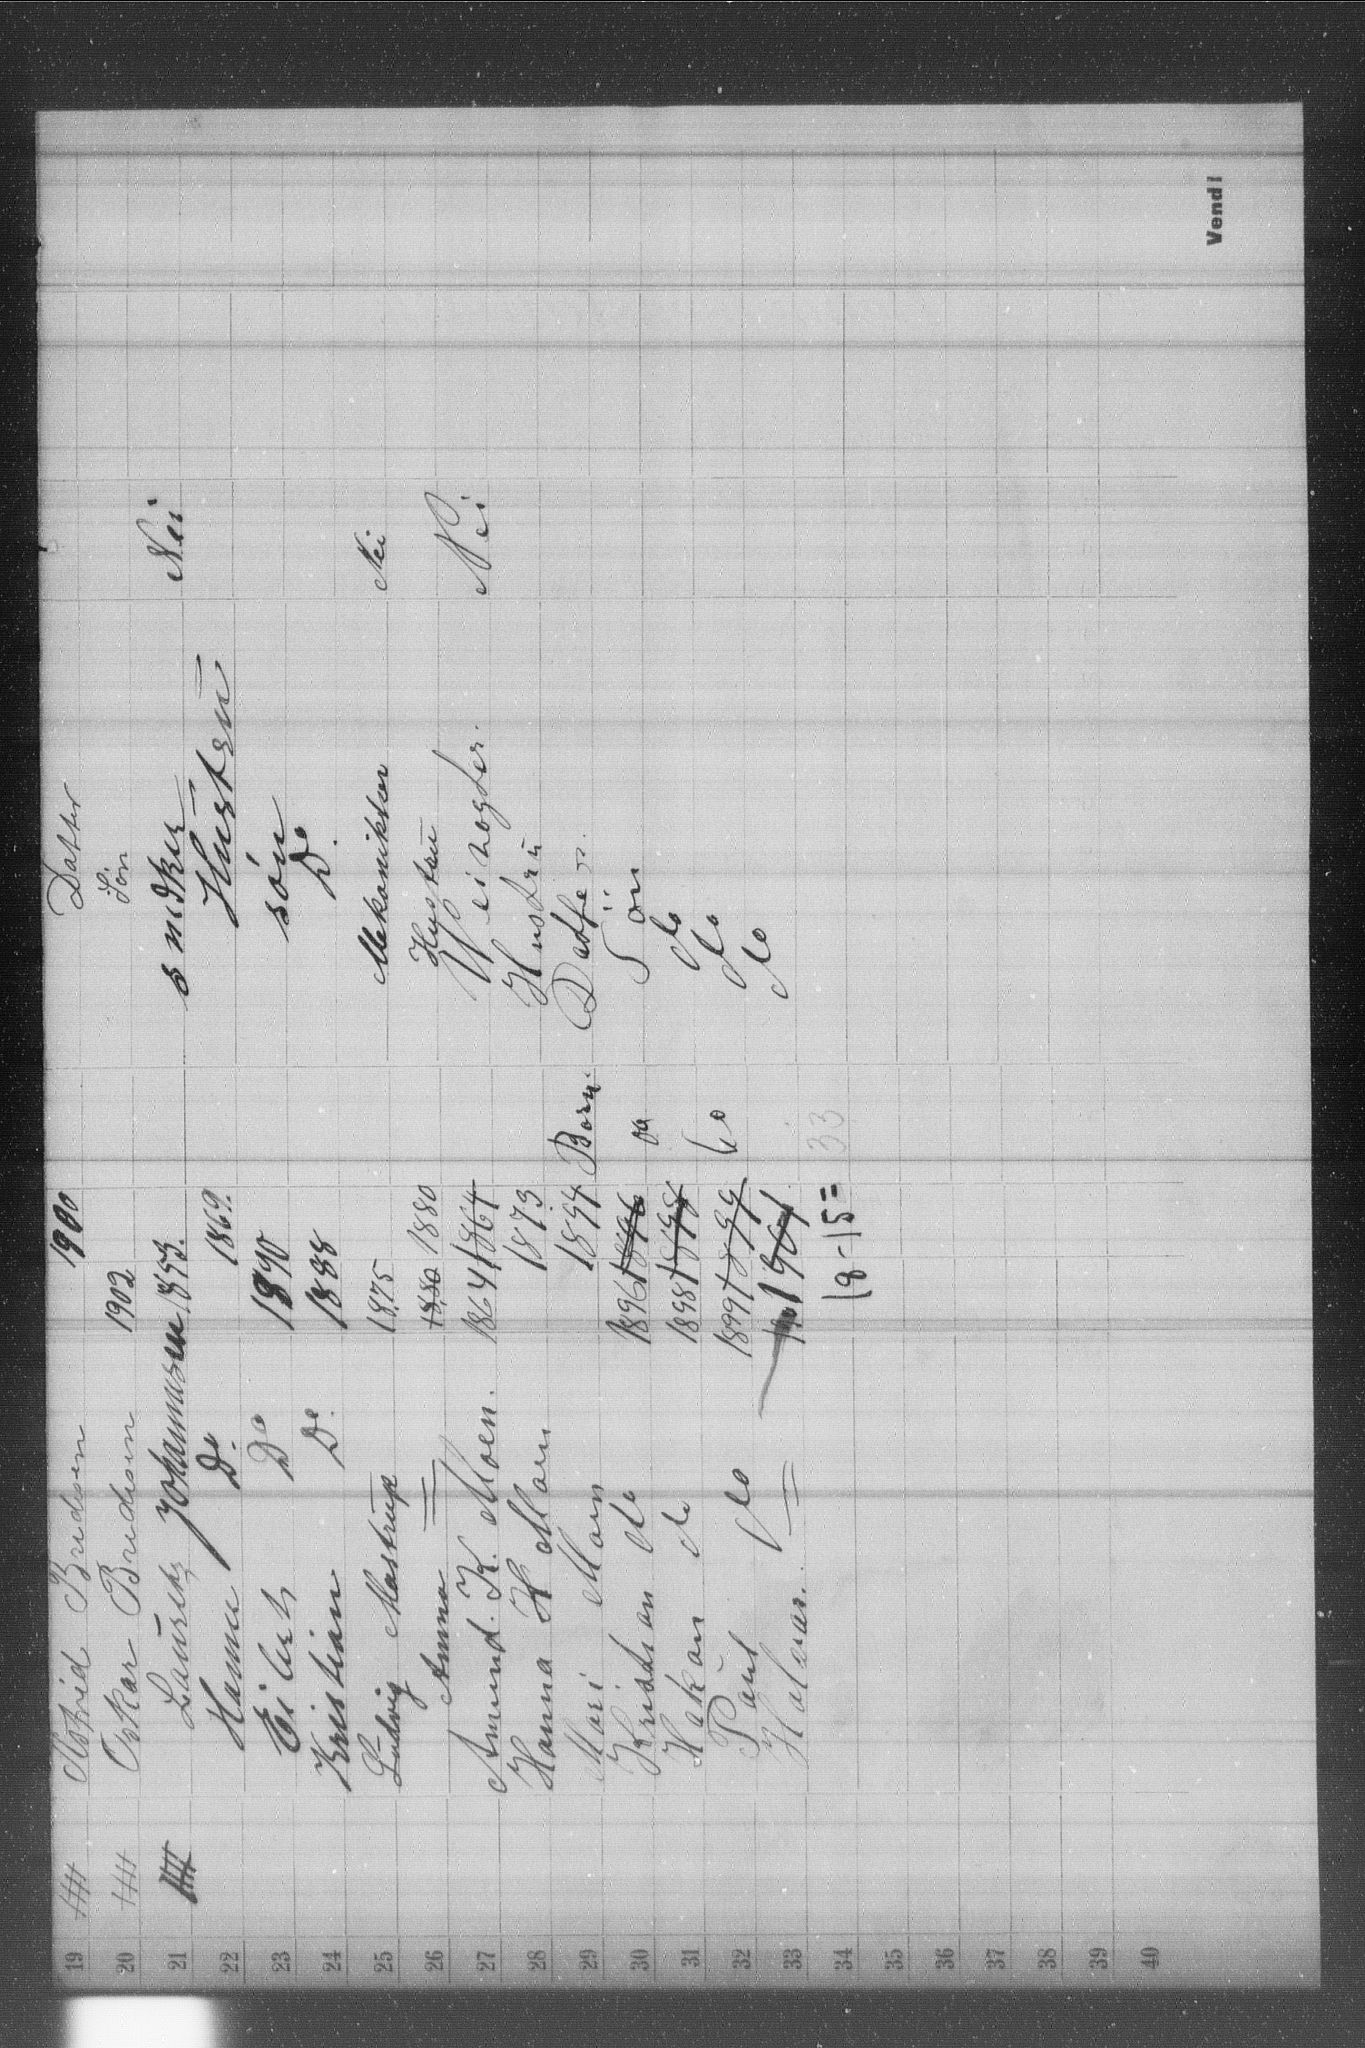 19 IIII Astrid Bredesen 1900 Datter
20 IIII Oskar Bredesen 1902 Sön
21 IIII Johannesen 1853. Nei
22 Hanna Do 1869. Hustru
23 Eilert Do 1890 sön
24 Kristian Do. 1888 Do.
25 Ludvig Mastrup 1875 Mekaniker Nei
26 Anna = 1880 1880 Hustru
27 Amund. K. Moen. 1864 1864 Nei
28 Hanna H Moen 1873 Hustru
29 Mari Moen 1894 Born. Datter
30 Kristian do 1896 1896 do Sön
31 Hakon do 1898 1898 do
32 Paul do 1899 1899 do do
33 Halvar. = 1901 do
34 18-15= 33
35
36
37
38
39
40
Vend!